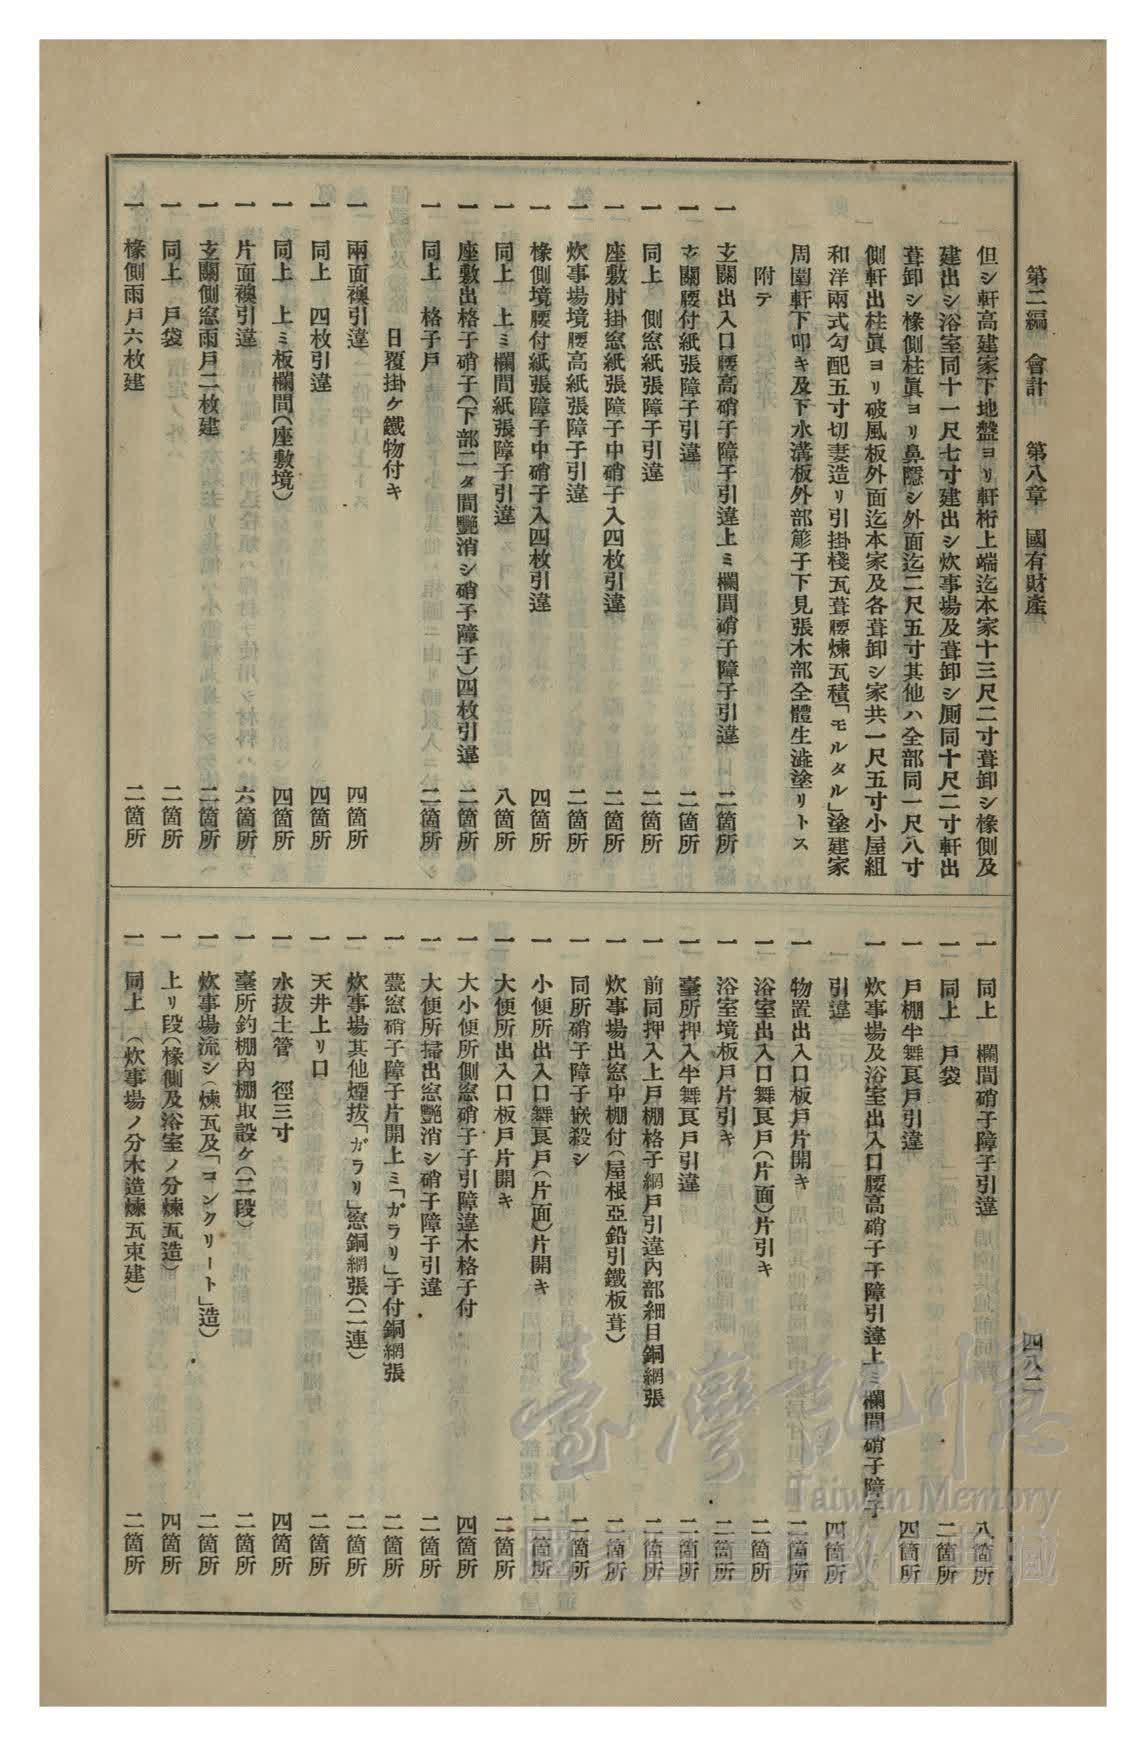 第二編　會計　　第八章　國有財產
四八二
但シ軒高建家下地盤ヨリ軒桁上端迄本家十三尺二寸葺卸シ椽側及
建出シ浴室同十一尺七寸建出シ炊事場及葺卸シ厠同十尺二寸軒出
葺卸シ椽側柱眞ヨリ鼻隱シ外面迄二尺五寸其他ハ全部同一尺八寸
側軒出柱眞ヨリ破風板外面迄本家及各葺卸シ家共一尺五寸小屋組
和洋兩式勾配五寸切妻造リ引掛棧瓦葺腰煉瓦積「モルタル」塗建家
周圍軒下叩キ及下水溝板外部簓子下見張木部全體生澁塗リトス
附テ
一　玄關出入口腰高硝子障子引違上ミ欄間硝子障子引違　二箇所
一　玄關腰付紙張障子引違　二箇所
一　同上　側窓紙張障子引違　二箇所
一　座敷肘掛窓紙張障子中硝子入四枚引違　二箇所
一　炊事場境腰高紙張障子引違　二箇所
一　椽側境腰付紙張障子中硝子入四枚引違　四箇所
一　同上　上ミ欄間紙張障子引違　八箇所
一　座敷出格子硝子(下部二タ間艷消シ硝子障子)四枚引違　二箇所
一　同上　格子戶　二箇所
日覆掛ケ鐵物付キ
一　兩面襖引違　四箇所
一　同上　四枚引違　四箇所
一　同上　上ミ板欄間(座敷境)　四箇所
一　片面襖引違　六箇所
一　玄關側窓雨戶二枚建　二箇所
一　同上　戶袋　二箇所
一　椽側雨戶六枚建　二箇所
一　同上　欄間硝子障子引違　八箇所
一　同上　戶袋　二箇所
一　戶棚半舞良戶引違　四箇所
一　炊事場及浴室出入口腰高硝子子障引違上ミ欄間硝子障子
引違　四箇所
一　物置出入口板戶片開キ　二箇所
一　浴室出入口舞良戶(片面)片引キ　二箇所
一　浴室境板戶片引キ　二箇所
一　臺所押入半舞良戶引違　二箇所
一　前同押入上戶棚格子網戶引違內部細目銅網張　二箇所
一　炊事場出窓中棚付(屋根亞鉛引鐵板葺)　二箇所
一　同所硝子障子嵌殺シ　二箇所
一　小便所出入口舞良戶(片面)片開キ　二箇所
一　大便所出入口板戶片開キ　二箇所
一　大小便所側窓硝子子引障違木格子付　四箇所
一　大便所掃出窓艷消シ硝子障子引違　二箇所
一　甍窓硝子障子片開上ミ「ガラリ」子付銅網張　二箇所
一　炊事場其他煙拔「ガラリ」窓銅網張(二連)　二箇所
一　天井上リ口　二箇所
一　水拔土管　徑三寸　四箇所
一　臺所釣棚內棚取設ケ(二段)　二箇所
一　炊事場流シ(煉瓦及「コンクリート」造)　二箇所
一　上リ段(椽側及浴室ノ分煉瓦造)　四箇所
一　同上　(炊事場ノ分木造煉瓦束建)　二箇所
臺灣記憶
Taiwan Memory